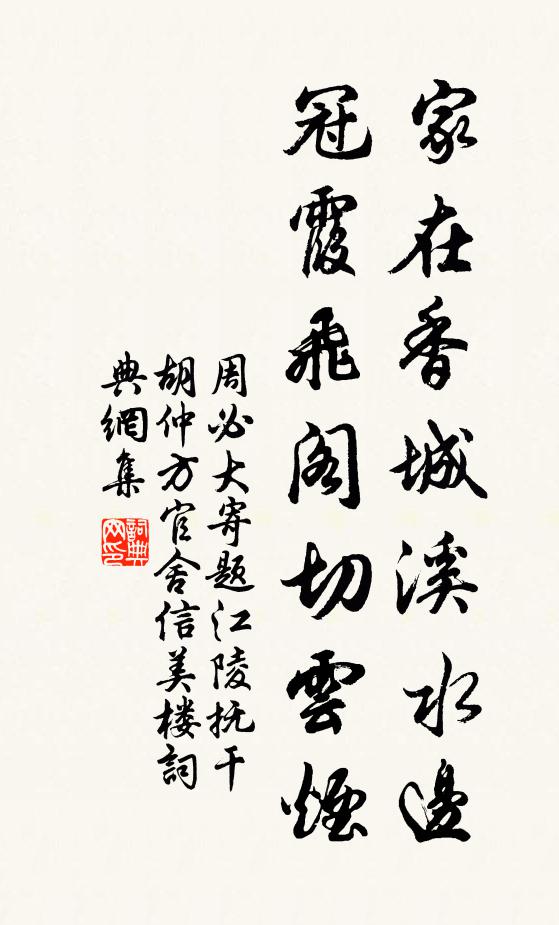 家在香城溪水邊
冠霞飛閣切雲煙
周必大寄題江陵抚干
胡仲方官舍信美楼詞
典網集
詞典网印